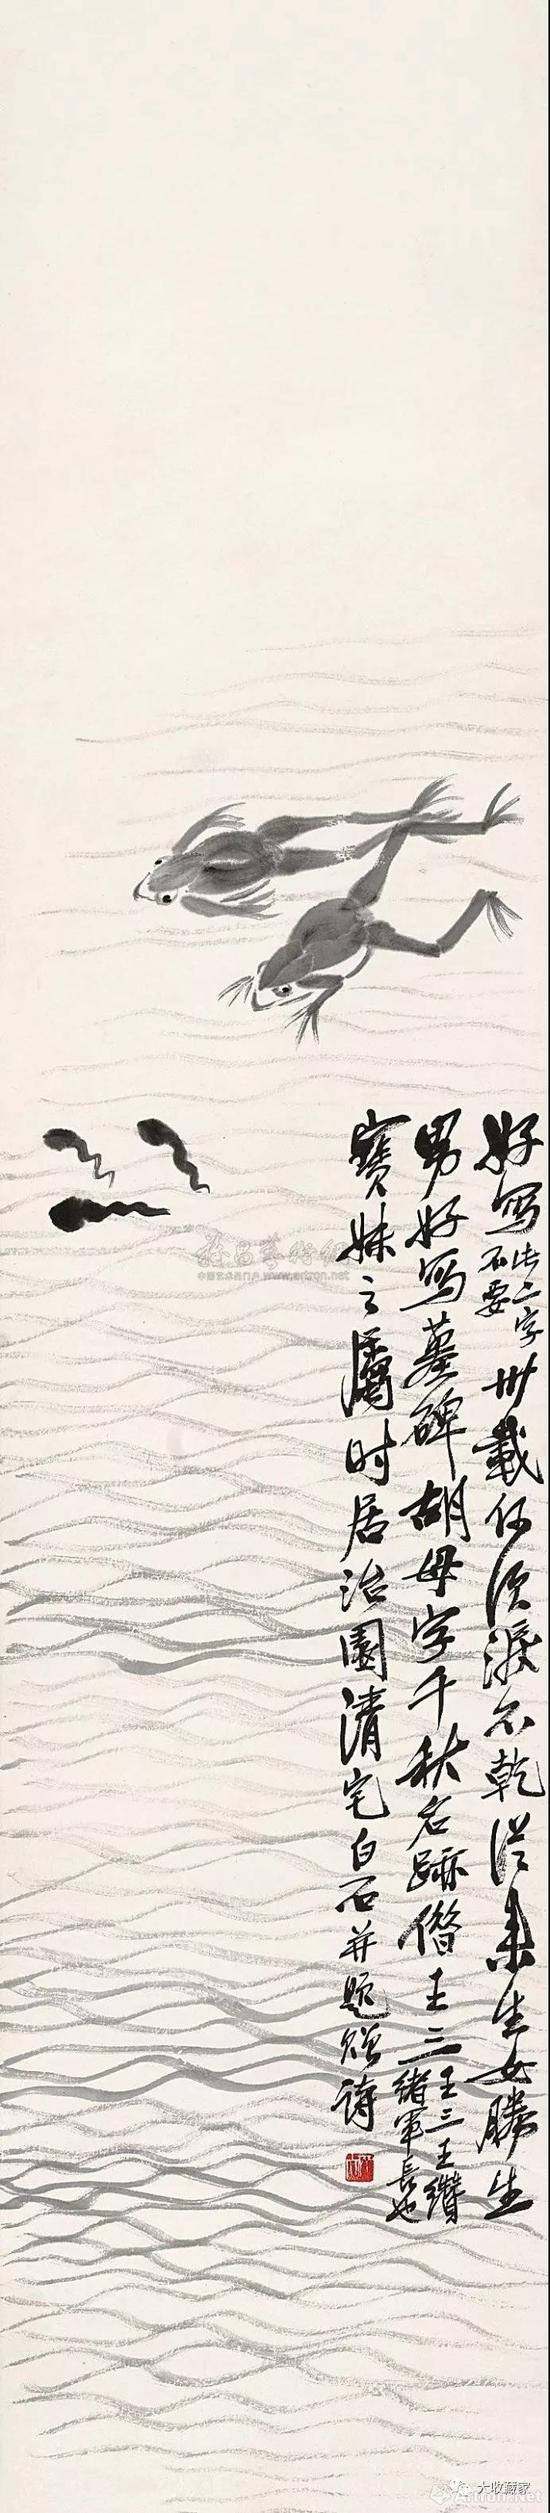 好写此二字不要卅载何须泪不乾从来生女胜生
男好写墓碑胡母字千秋名迹借王三王三王缵绪军长也
宝妹之属时居治园清宅白石并题赠诗
中国艺术品门户 www.artron.net
大收藏家
Artron.Net